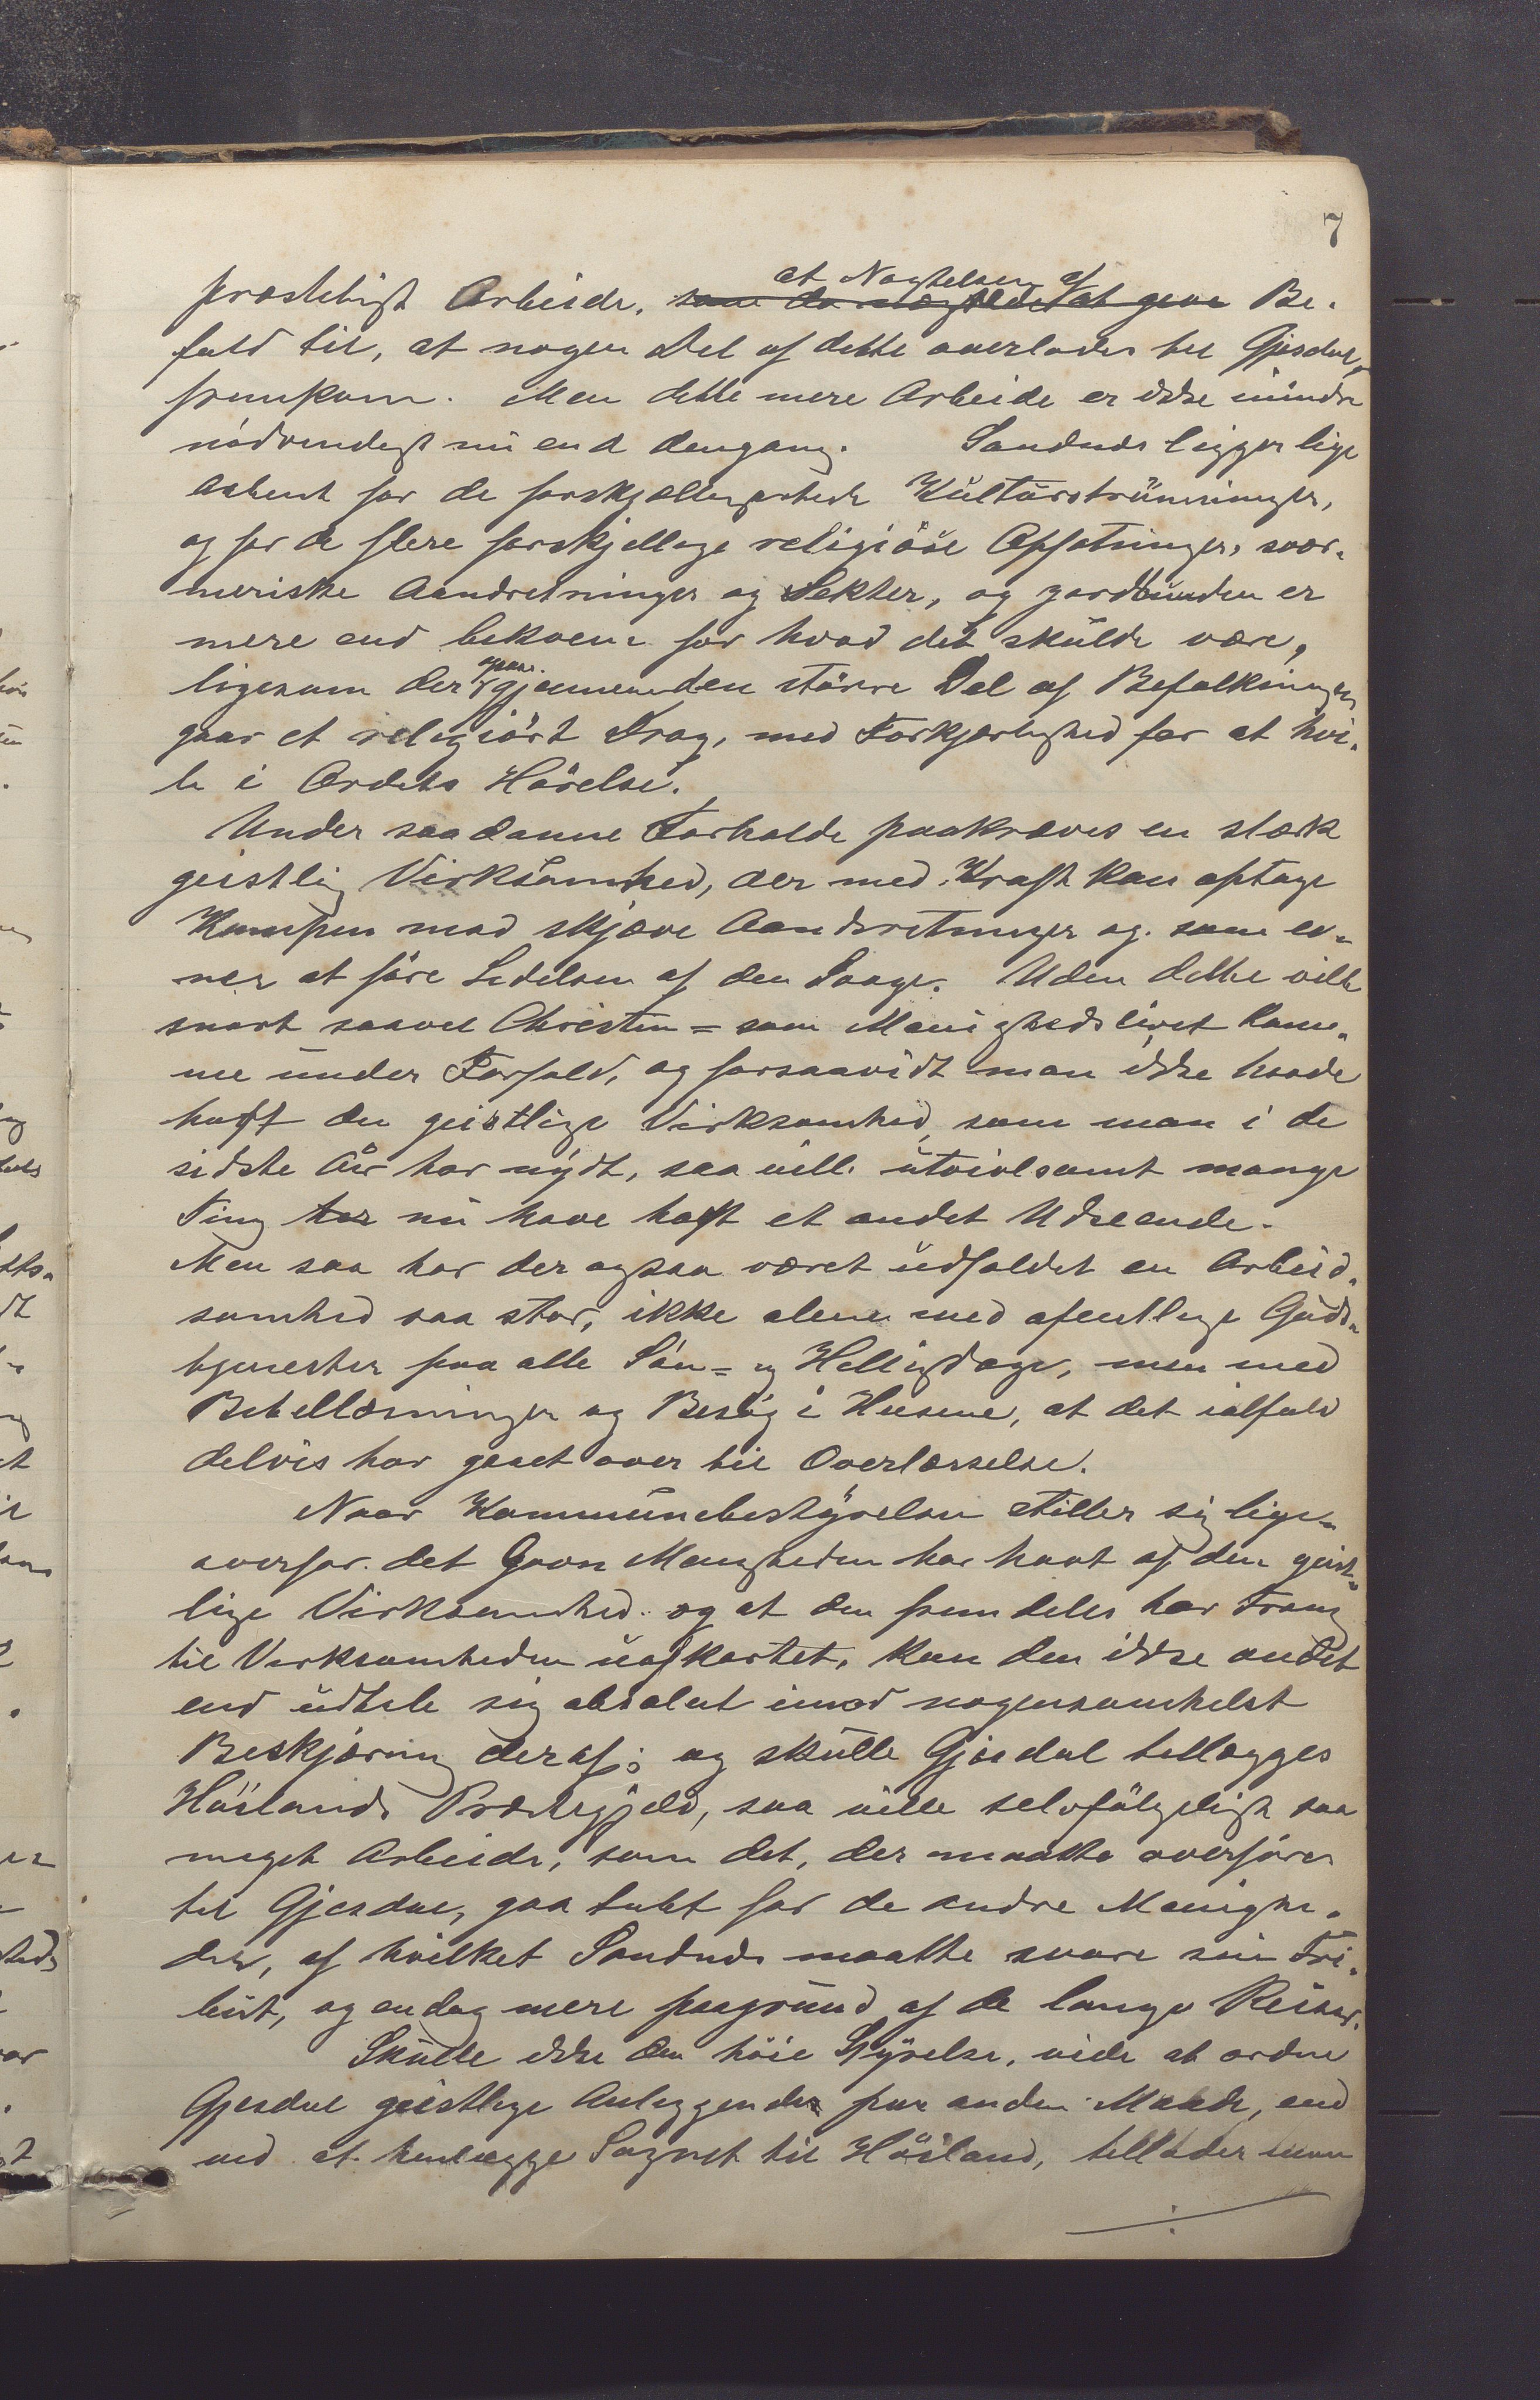 7
at Nægtelsen af
præsteligt Arbeide, som da nægtede at geve Be-
fald til, at nogen Del af dette overlodes til Gjesdal,
fremkom. Men dette mere Arbeide er ikke mindre
nödvendigt nu end dengang. Sandnes ligger lige
aabent for de forskjelligartede Kulturströmninger,
og for de flere forskjellige religiöse Opfatninger, svær-
meriske Aandretninger og Sekter, og jordbunden er
mere end bekvem for hvad det skulde være,
ogsaa
ligesom der gjennem den större Del af Befolkningen
gaar et religiört Drag, med Forkjærlighed for at hvi-
le i Ordets Hörelse.
Under saadanne Forholde paakræves en stærk
geistlig Virksamhed, der med Kraft kan optage
Kampen mod skjæve Aandsretninger og som ev-
ner at före Ledelsen af den Saage. Uden dette vilde
snart saavel Christen- som Menighedslivet kom-
me under Forfald, og forsaavidt man ikke havde
haft den geistlige Virksomhed, som man i de
sidste Aar har nydt, saa vilde utvivlsomt mange
Ting har nu have haft et andet Udseende.
Men saa har der ogsaa været udfoldet en Arbeid-
somhed saa stor, ikke alene med ofentlige Guds-
tjenester paa alle Sön- og Helligdage, men med
Bibellæsninger og Besög i Husene, at det ialfald
delvis har gaaet over til Overlæsselse.
Naar Kommunebestyrelsen stiller sig lige-
overfor det Gavn Menigheden har havt af den geist-
lige Virksomhed og at den fremdeles har Trang
til Virksomheden uafkortet, kan den ikke andet
end udtale sig absolut imod nogensomhelst
Beskjæring deraf; og skulle Gjesdal tillægges
Höilands Præstegjeld, saa ville selvfölgeligt saa
meget Arbeide, som det, der maatte overföres
til Gjesdal, gaa tabt for de andre Menighe-
der, af hvilket Sandnes maatte svare sin Tri-
but, og endog mere paagrund af de lange Reiser.
Skulle ikke den höie Styrelse, vide at ordne
Gjesdal geistlige Anliggender paa anden Maade, end
ved at henlægge Sognet til Höiland, tillader man